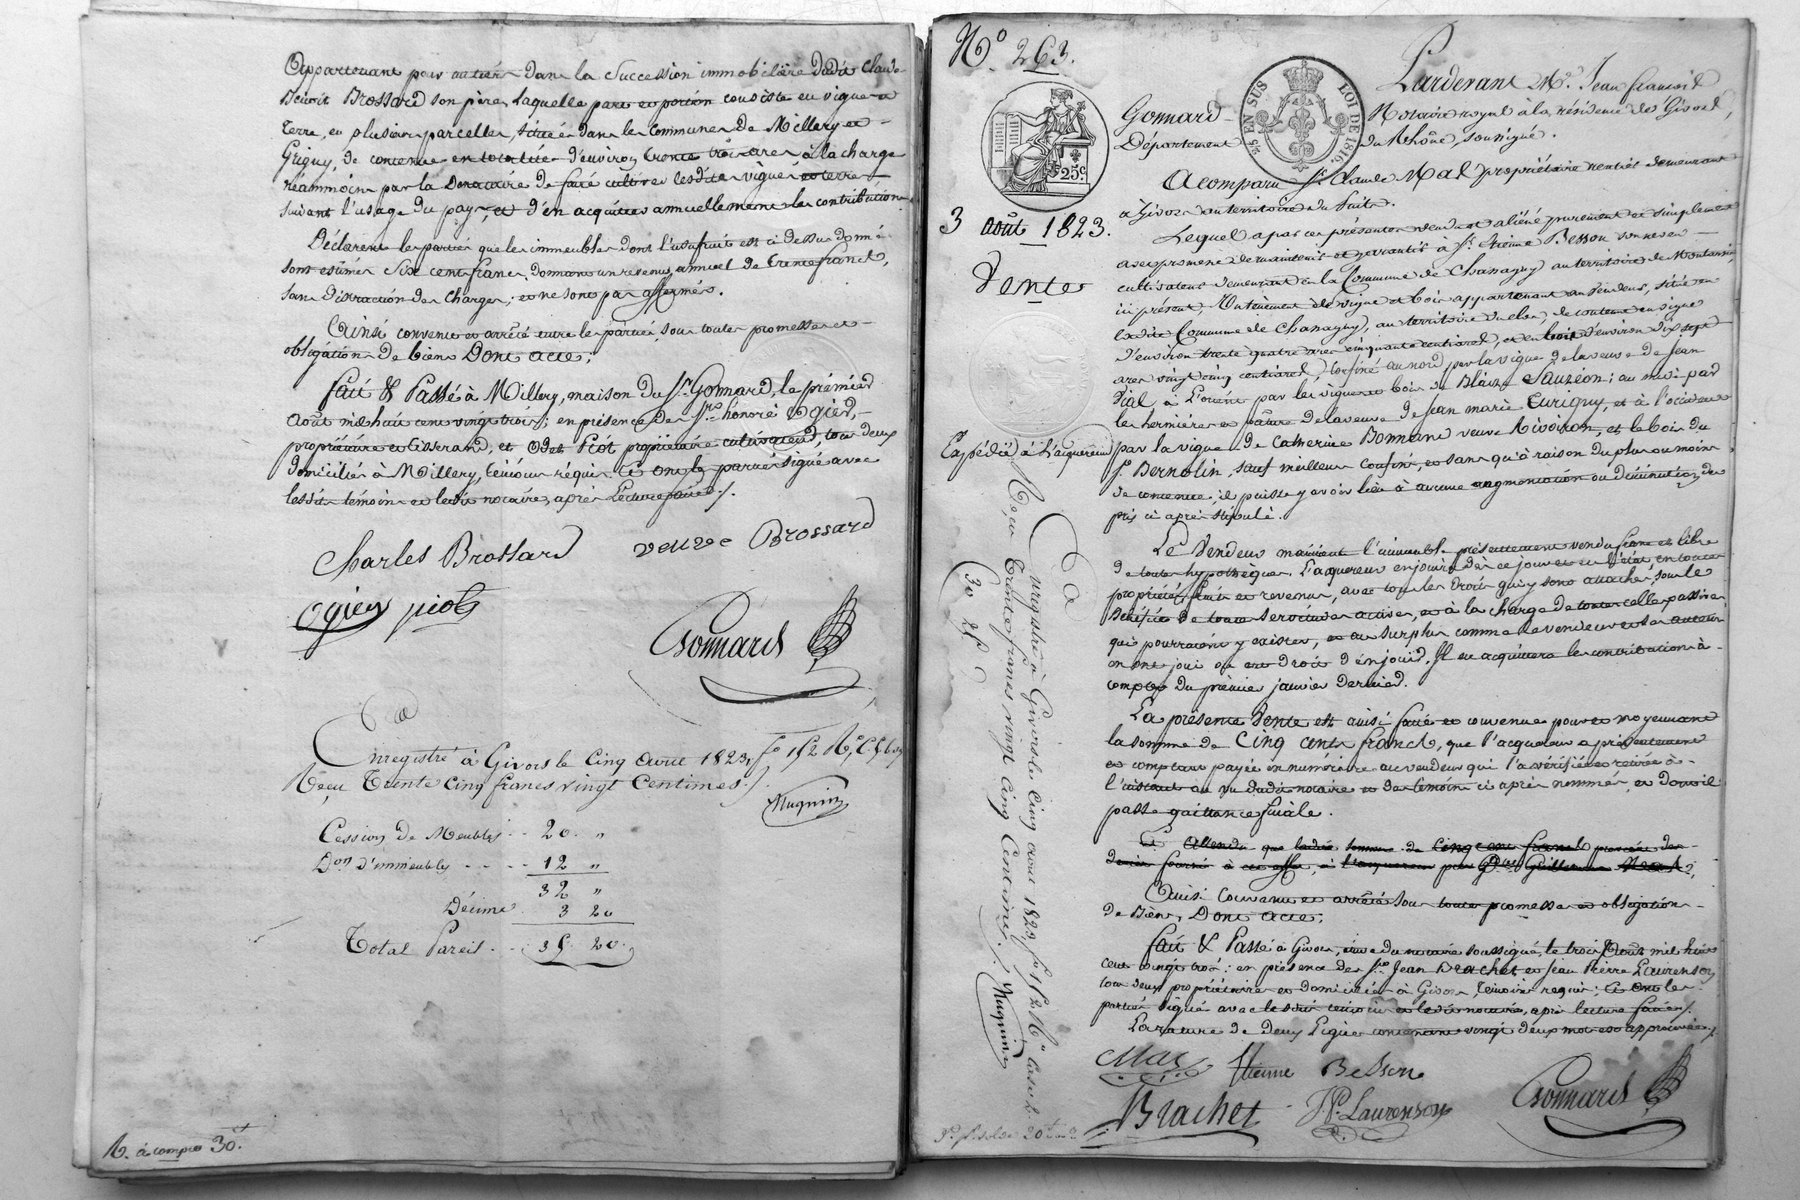 Appartenant pour un tiers dans la Succession immobilière dudit Claude
Benoit Brossard son père, laquelle part et portion consiste en vigne et
terre, en plusieurs parcelles, situées dans les Communes de Millery et
Grigny, de contenue en totalité d'environ trente trois ares, à la charge
néammoins par la Donataire de faire cultiver lesdites vignes et terres
suivant l'usage du pays, et d'en acquitter annuellement les contributions.
Déclarent les parties que les immeubles dont l'usufruit est ci dessus donné
sont estimés Six cent francs, donnant un revenu annuel de trente francs,
sans distraction des charges; et ne sont pas affermés.
Ainsi convenu et arrêté entre les parties, sous toutes promesses et
obligations de biens Dont acte;
fait & Passé à Millery, maison du Sr. Gonnard, le premier
Août mil huit cent vingt trois; en présence de Srs. honoré Ogier,
propriétaire et tisserand, et Piot propriétaire cultivateur, tous deux
domiciliés à Millery, témoins réquis. Et ont les parties signé avec
lesdits témoins et ledit notaire, après Lecture faite./.
Charles Brossard veuve Brossard
Ogier piot
Gonnard
Enregistré à Givors le Cinq Août 1823, fo 152
Reçu Trente Cinq francs vingt Centimes./.
Hugnin
Cession de Meubles .. 20. "
Don d'immeubles .... 12 "
32 "
Décime 3 20
Total Pareil .. 35. 20.
R. à compte 30.
No. 263.
25c
25 EN SUS
LOI DE 1816.
3 août 1823.
Vente
Expédié à l'acquéreur
Enregistré à Givors le Cinq aout 1823 fo 152
Reçu Trente francs vingt Cinq Centimes./. Hugnin
Pardevant Me. Jean françois
Gonnard Notaire royal à la résidence de Givors,
Département du Rhône, soussigné.
A comparu Sr. Claude Mas propriétaire rentier demeurant
à Givors
Lequel a par ces présentes vendu et aliéné purement et simplement
avec promesse de maintenir et garantir à Sr. Etienne Besson son neveu
cultivateur demeurant en la Commune de Chassagny au territoire de Montarnin,
ici présent, Un tènement de vigne et bois appartenant au Vendeur, situé en
ladite Commune de Chassagny, au territoire de contenue en vigne
d'environ trente quatre ares cinquante centiares, et en bois d'environ dix sept
ares vingt cinq centiares, confiné au nord par la vigne de la veuve de Jean
Vial à l'orient par les vigne et bois de Blaise Sauzéon; au midi par
les hermières et pature de la veuve de Jean marie Eurigny, et à l'occident
par la vigne de Catherine Bonnand veuve Rivoiron, et le bois du
Sr. Bernolin, sauf meilleurs confins, et sans qu'à raison du plus ou moins
de contenue, il puisse y avoir lieu à aucune augmentation ou diminution du
prix ci après stipulé.
Le Vendeur maintient l'immeuble présentement vendu franc et libre
de toutes hypothèques. L'acquéreur en jouira dès ce jour et en toute
propriété, fruits et revenus, avec tous les droits qui y sont attachés, sous le
Bénéfice de toutes servitudes actives, et à la charge de toutes celles passives
qui pourraient y exister, et au surplus comme le vendeur et ses auteurs
en ont joui ou eu droit d'en jouir. Il en acquittera les contributions à
compter du prémier janvier dernier.
La présente Vente est ainsi faite et convenue pour et moyennant
la somme de Cinq cents francs, que l'acquéreur a présentement
et comptant payée en numéraire au vendeur qui l'a vérifiée et retirée à
l'instant au vu dudit notaire et des témoins ci après nommés, et dont il
passe quittance finale.
Et Attendu que ladite somme de Cinq cent francs
Ainsi Convenu et arrêté sous toutes promesses et obligations
de Biens, Dont acte;
fait & Passé à Givors, étude du notaire soussigné, le trois Août mil huit
cent vingt trois: en présence des Srs. Jean Brachet et Jean Pierre Laurenson,
tous deux propriétaires et domiciliés à Givors, témoins requis; Et ont les
parties signé avec lesdits témoins et ledit notaire, après lecture faite./.
La rature de deux Lignes contenant vingt deux mots est approuvée./.
Mas Etienne Besson
Brachet J.P. Laurenson Gonnard